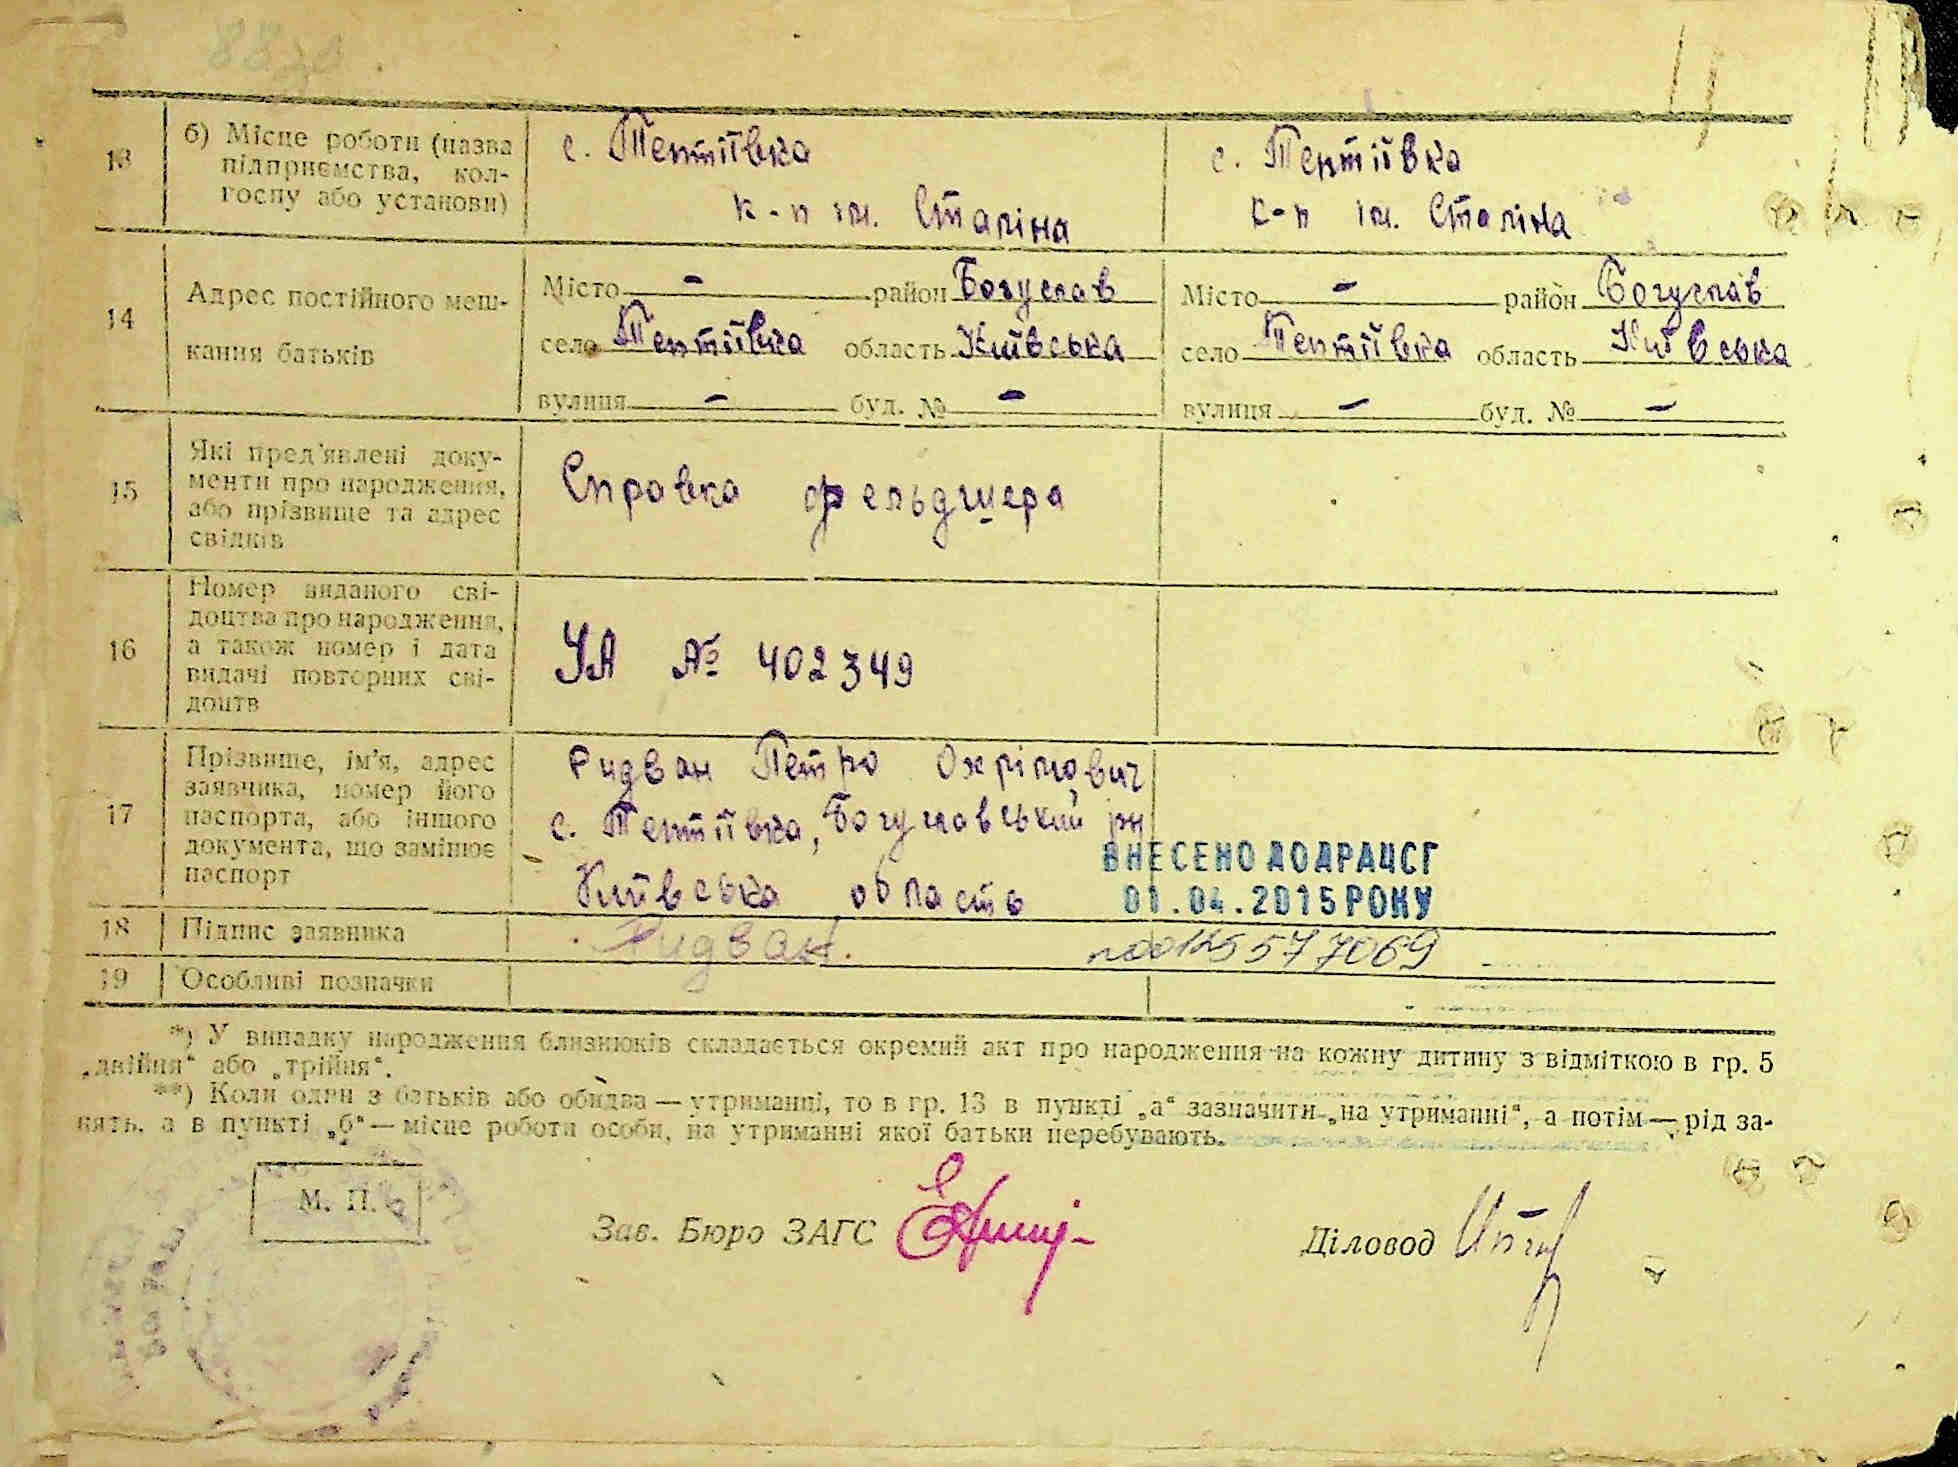 13
б) Місце роботи (назва підприємства, колгоспу або установи)
с. Тептіївка
к-п ім. Сталіна
с. Тептіївка
к-п ім. Сталіна
14
Адрес постійного мешкання батьків
Місто - район Богуслав
село Тептіївка область Київська
вулиця - буд. № -
Місто - район Богуслав
село Тептіївка область Київська
вулиця - буд. № -
15
Які пред'явлені документи про народження, або прізвище та адрес свідків
Справка фельдшера
16
Номер виданого свідоцтва про народження, а також номер і дата видачі повторних свідоцтв
УА № 402349
17
Прізвище, ім'я, адрес заявника, номер його паспорта, або іншого документа, що замінює паспорт
Ридван Петро Охрімович
с. Тептіївка, Богуславський рн
Київська область
ВНЕСЕНО ДО ДРАЦСГ
01.04.2015 РОКУ
18
Підпис заявника
Ридван.
00125577069
19
Особливі позначки
*) У випадку народження близнюків складається окремий акт про народження на кожну дитину з відміткою в гр. 5
„двійня“ або „трійня“.
**) Коли один з батьків або обидва — утриманці, то в гр. 13 в пункті „а“ зазначити „на утриманні“, а потім — рід за-
нять, а в пункті „б“ — місце роботи особи, на утриманні якої батьки перебувають.
М. П.
Зав. Бюро ЗАГС
Діловод